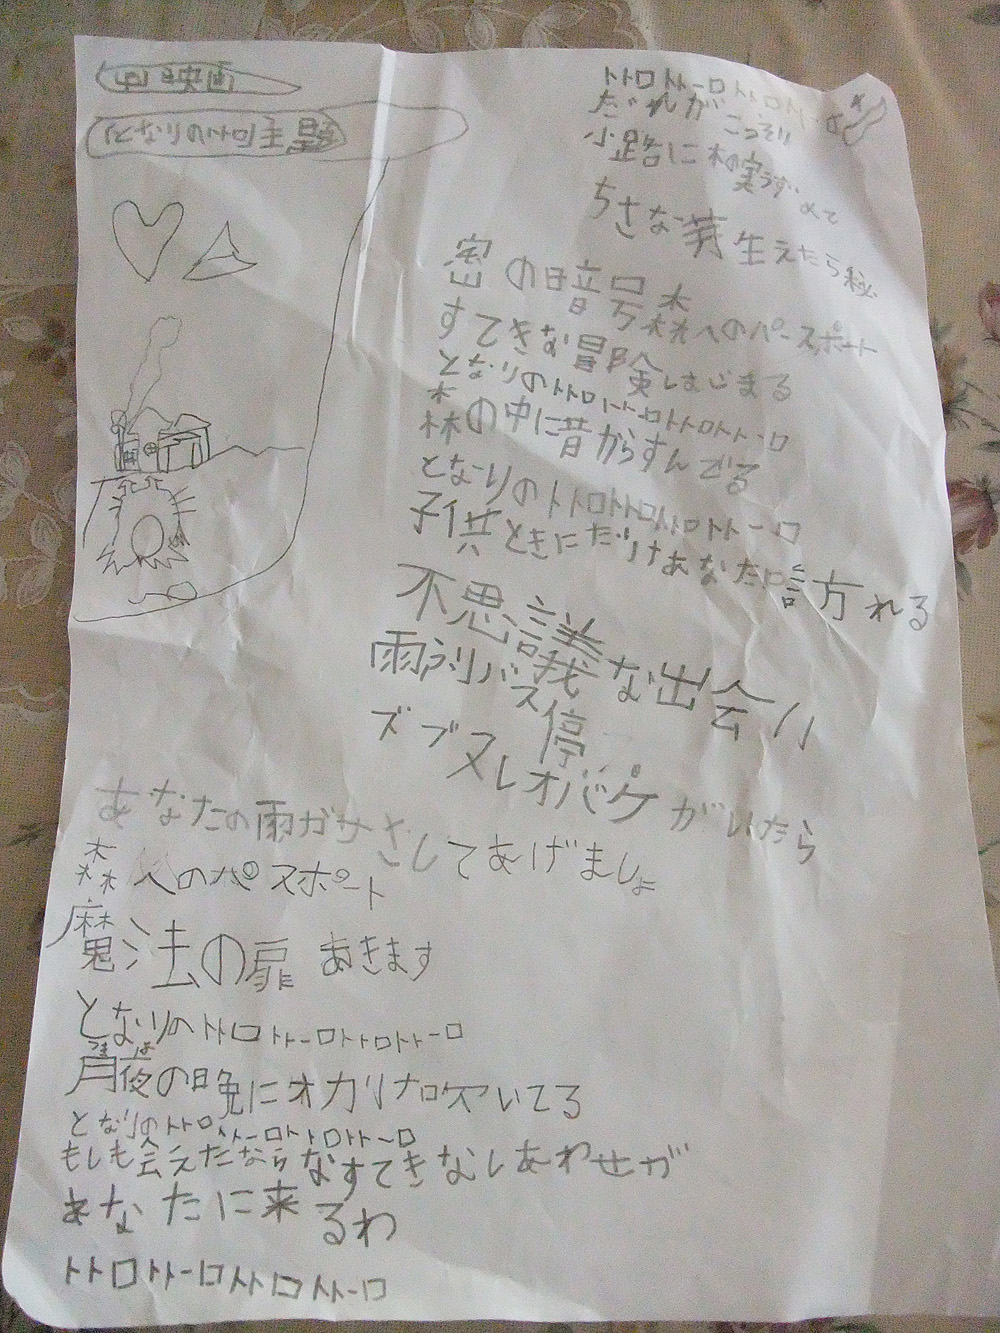 映画
となりのトトロ主題
トトロトトーロトトロトトーロ
だれがこっそり
小路に木の実うずめて
ちさな芽生えたら秘
密の暗号森へのパースポート
すてきな冒険はじまる
となりのトトロトトーロトトロトトーロ
森の中に昔からすんでる
となりのトトロトトロトトロトトーロ
子供ときにだけあなた訪れる
不思議な出会い
雨ふりバス停
ズブヌレオバケがいたら
あなたの雨ガサさしてあげましょ
森へのパスポート
魔法の扉あきます
となりのトトロトトーロトトロトトーロ
月夜の晩にオカリナ吹いてる
となりのトトロトトーロトトロトトーロ
もしも会えたならなすてきなしあわせが
あなたに来るわ
トトロトトーロトトロトトーロ